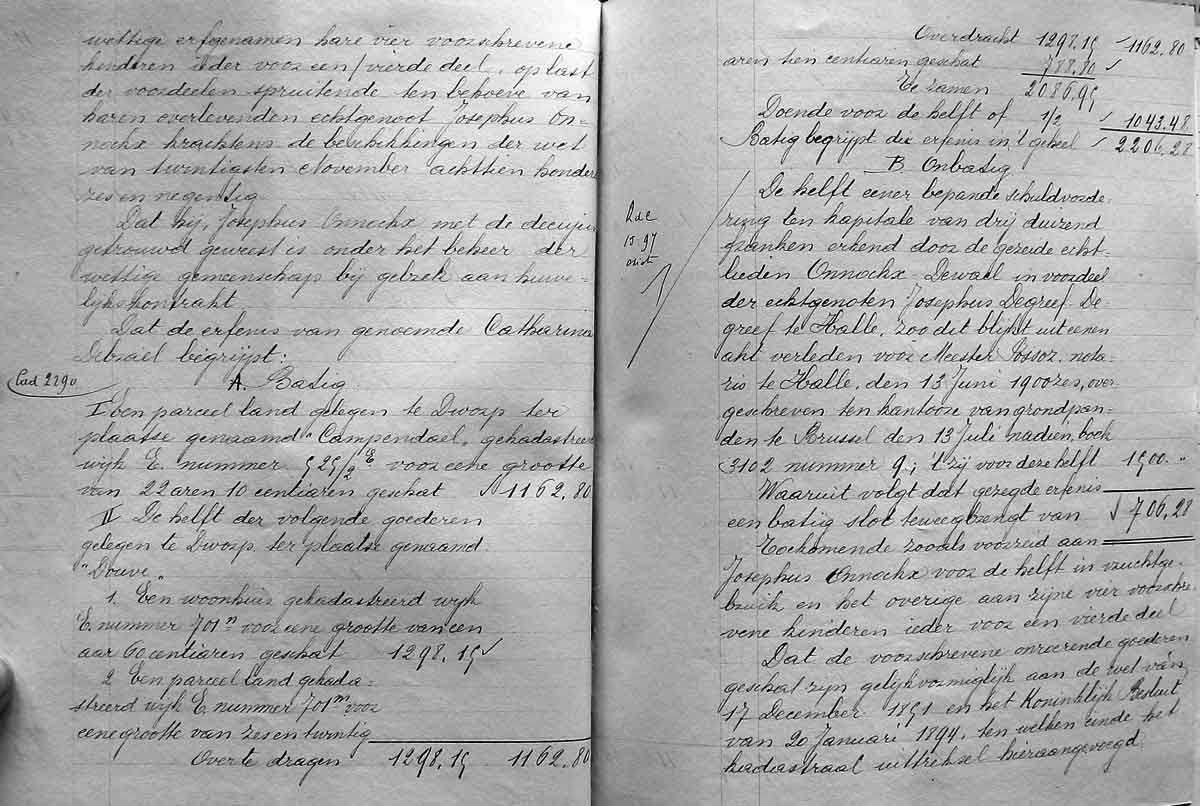 wettige erfgenamen hare vier voorschrevene
kinderen ieder voor een/vierde deel, op last
der voordeelen spruitende ten behoeve van
haren overlevenden echtgenoot Josephus On-
nockx krachtens de beschikkingen der wet
van twintigsten November achttien honderd
zes en negentig
Dat hij, Josephus Onnockx met de decujus
getrouwd geweest is onder het beheer der
wettige gemeenschap bij gebrek aan huwe-
lijkskontrakt
Dat de erfenis van genoemde Catharina
Dewael begrijpt:
Cad 2290
A. Batig
I Een parceel land gelegen te Dworp ter
plaatse genaamd "Campendael" gekadastreerd
wijk E. nummer 525/2 E voor eene grootte
van 22 aren 10 centiaren geschat 1162,80
II De helft der volgende goederen
gelegen te Dworp ter plaatse genaamd
"Douve"
1. Een woonhuis gekadastreerd wijk
E. nummer 701n voor eene grootte van een
aar 60 centiaren geschat 1298.15
2 Een parceel land gekada-
streerd wijk E. nummer 701m voor
eene grootte van zes en twintig
Over te dragen 1298.15 1162.80
Overdracht 1298.15 1162.80
aren tien centiaren geschat 788.80
Te zamen 2086.95
Doende voor de helft of 1/2 1043.48
Batig begrijpt die erfenis in 't geheel 2206.28
B. Onbatig
De helft eener bepande schuldvorde-
ring ten kapitale van drij duizend
franken erkend door de gezeide echt-
lieden Onnockx-Dewael in voordeel
der echtgenoten Josephus Degreef-De-
greef te Halle, zoo dit blijkt uit eenen
akt verleden voor Meester Possoz, nota-
ris te Halle, den 13 Juni 1900zes, over-
geschreven ten kantoore van grondpan-
den te Brussel den 13 Juli nadien, boek
3102 nummer 9; 't zij voor deze helft 1500.-
Waaruit volgt dat gezegde erfenis
een batig slot teweegbrengt van 706,28
Toekomende zooals voorzeid aan
Josephus Onnockx voor de helft in vruchtge-
bruik en het overige aan zijne vier voorschre-
vene kinderen ieder voor een vierde deel
Dat de voorschrevene onroerende goederen
geschat zijn gelijkvormiglijk aan de wet van
17 December 1851 en het Koninklijk Besluit
van 20 Januari 1894, ten welken einde het
kadastraal uittreksel hieraangevoegd